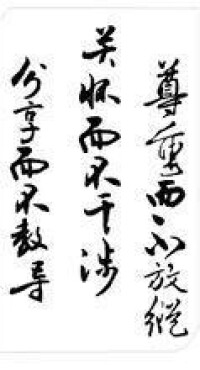 尊重而不放縱
关怀而不干涉
分享而不教导